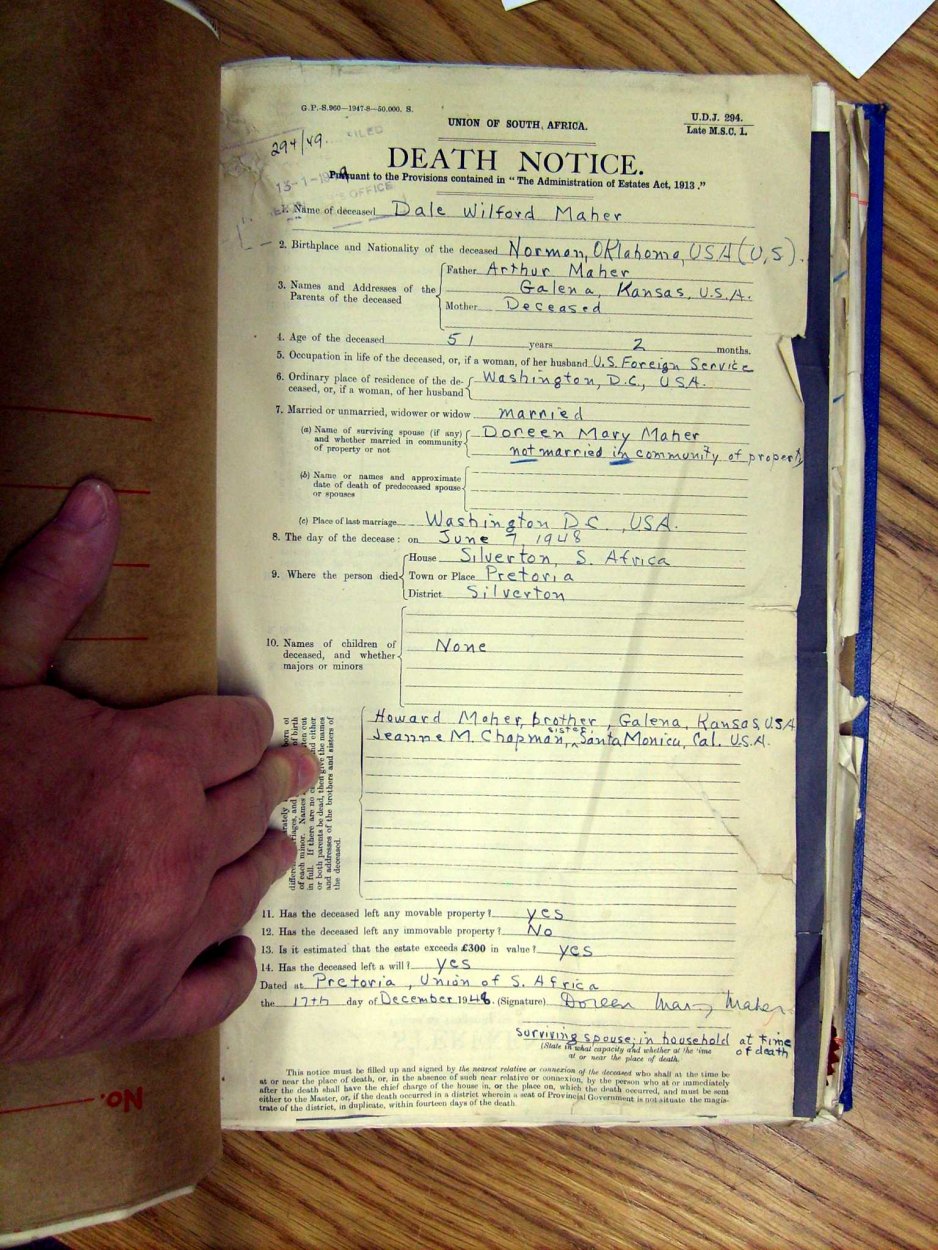 G.P.-S.960—1947-8—50,000. S.
U.D.J. 294.
UNION OF SOUTH AFRICA.
Late M.S.C. 1.
294/49.
FILED
DEATH NOTICE.
Pursuant to the Provisions contained in "The Administration of Estates Act, 1913."
13-1-19
OFFICE
1. Name of deceased Dale Wilford Maher
2. Birthplace and Nationality of the deceased Norman, Oklahoma, USA (U.S.).
3. Names and Addresses of the Parents of the deceased
Father Arthur Maher
Galena, Kansas, U.S.A.
Mother Deceased
4. Age of the deceased 51 years 2 months.
5. Occupation in life of the deceased, or, if a woman, of her husband U.S. Foreign Service
6. Ordinary place of residence of the de-
ceased, or, if a woman, of her husband
Washington, D.C., USA.
7. Married or unmarried, widower or widow married
(a) Name of surviving spouse (if any)
and whether married in community
of property or not
Doreen Mary Maher
not married in community of property
(b) Name or names and approximate
date of death of predeceased spouse
or spouses
(c) Place of last marriage Washington D.C., USA.
8. The day of the decease: on June 7, 1948
9. Where the person died
House Silverton, S. Africa
Town or Place Pretoria
District Silverton
10. Names of children of
deceased, and whether
majors or minors
None
Howard Maher, brother, Galena, Kansas, USA
Jeanne M. Chapman, sister, Santa Monica, Cal. U.S.A.
of each minor. Names
in full. If there are no
or both parents be dead, then give the names
and addresses of the brothers and sisters of
the deceased.
11. Has the deceased left any movable property? yes
12. Has the deceased left any immovable property? No
13. Is it estimated that the estate exceeds £300 in value? yes
14. Has the deceased left a will? yes
Dated at Pretoria, Union of S. Africa
the 17th day of December 1948. (Signature) Doreen Mary Maher
surviving spouse; in household at time of death
(State in what capacity and whether at the time
at or near the place of death.
This notice must be filled up and signed by the nearest relative or connexion of the deceased who shall at the time be
at or near the place of death, or, in the absence of such near relative or connexion, by the person who at or immediately
after the death shall have the chief charge of the house in, or the place on, which the death occurred, and must be sent
either to the Master, or, if the death occurred in a district wherein a seat of Provincial Government is not situate the magis-
trate of the district, in duplicate, within fourteen days of the death.
No.